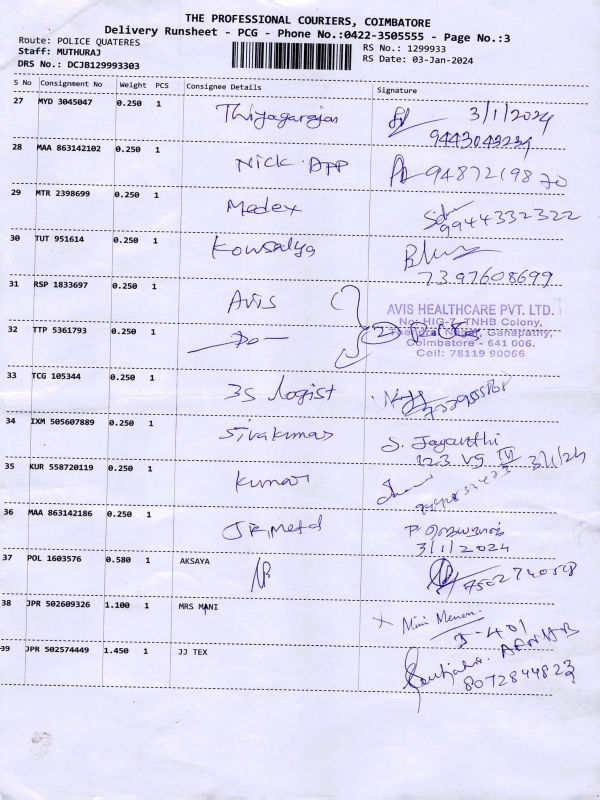 THE PROFESSIONAL COURIERS, COIMBATORE
Delivery Runsheet - PCG - Phone No.:0422-3505555 - Page No.:3
Route: POLICE QUATERES
RS No.: 1299933
Staff: MUTHURAJ
RS Date: 03-Jan-2024
DRS No.: DCJB129993303
S No Consignment No Weight PCS Consignee Details Signature
27 MYD 3045047 0.250 1 Thiyagarajan 3/1/2024
9443043239
28 MAA 863142102 0.250 1 Nick APP 9487219870
29 MTR 2398699 0.250 1 Medex
9944332322
30 TUT 951614 0.250 1 Kowsalya
7397608699
31 RSP 1833697 0.250 1 Avis
AVIS HEALTHCARE PVT. LTD.
No: HIG-7, TNHB Colony,
32 TTP 5361793 0.250 1 -Do- 2
Ganapathy,
Coimbatore - 641 006.
Cell: 78119 90066
33 TCG 105344 0.250 1 3S Logist
34 IXM 505607889 0.250 1 Sivakumar S. Jayanthi
123 VG IV 3/1/24
35 KUR 558720119 0.250 1 Kumar
36 MAA 863142186 0.250 1 JR Metal
3/1/2024
37 POL 1603576 0.580 1 AKSAYA 7502740518
38 JPR 502609326 1.100 1 MRS MANI Mini Menon
39 JPR 502574449 1.450 1 JJ TEX
8072844823